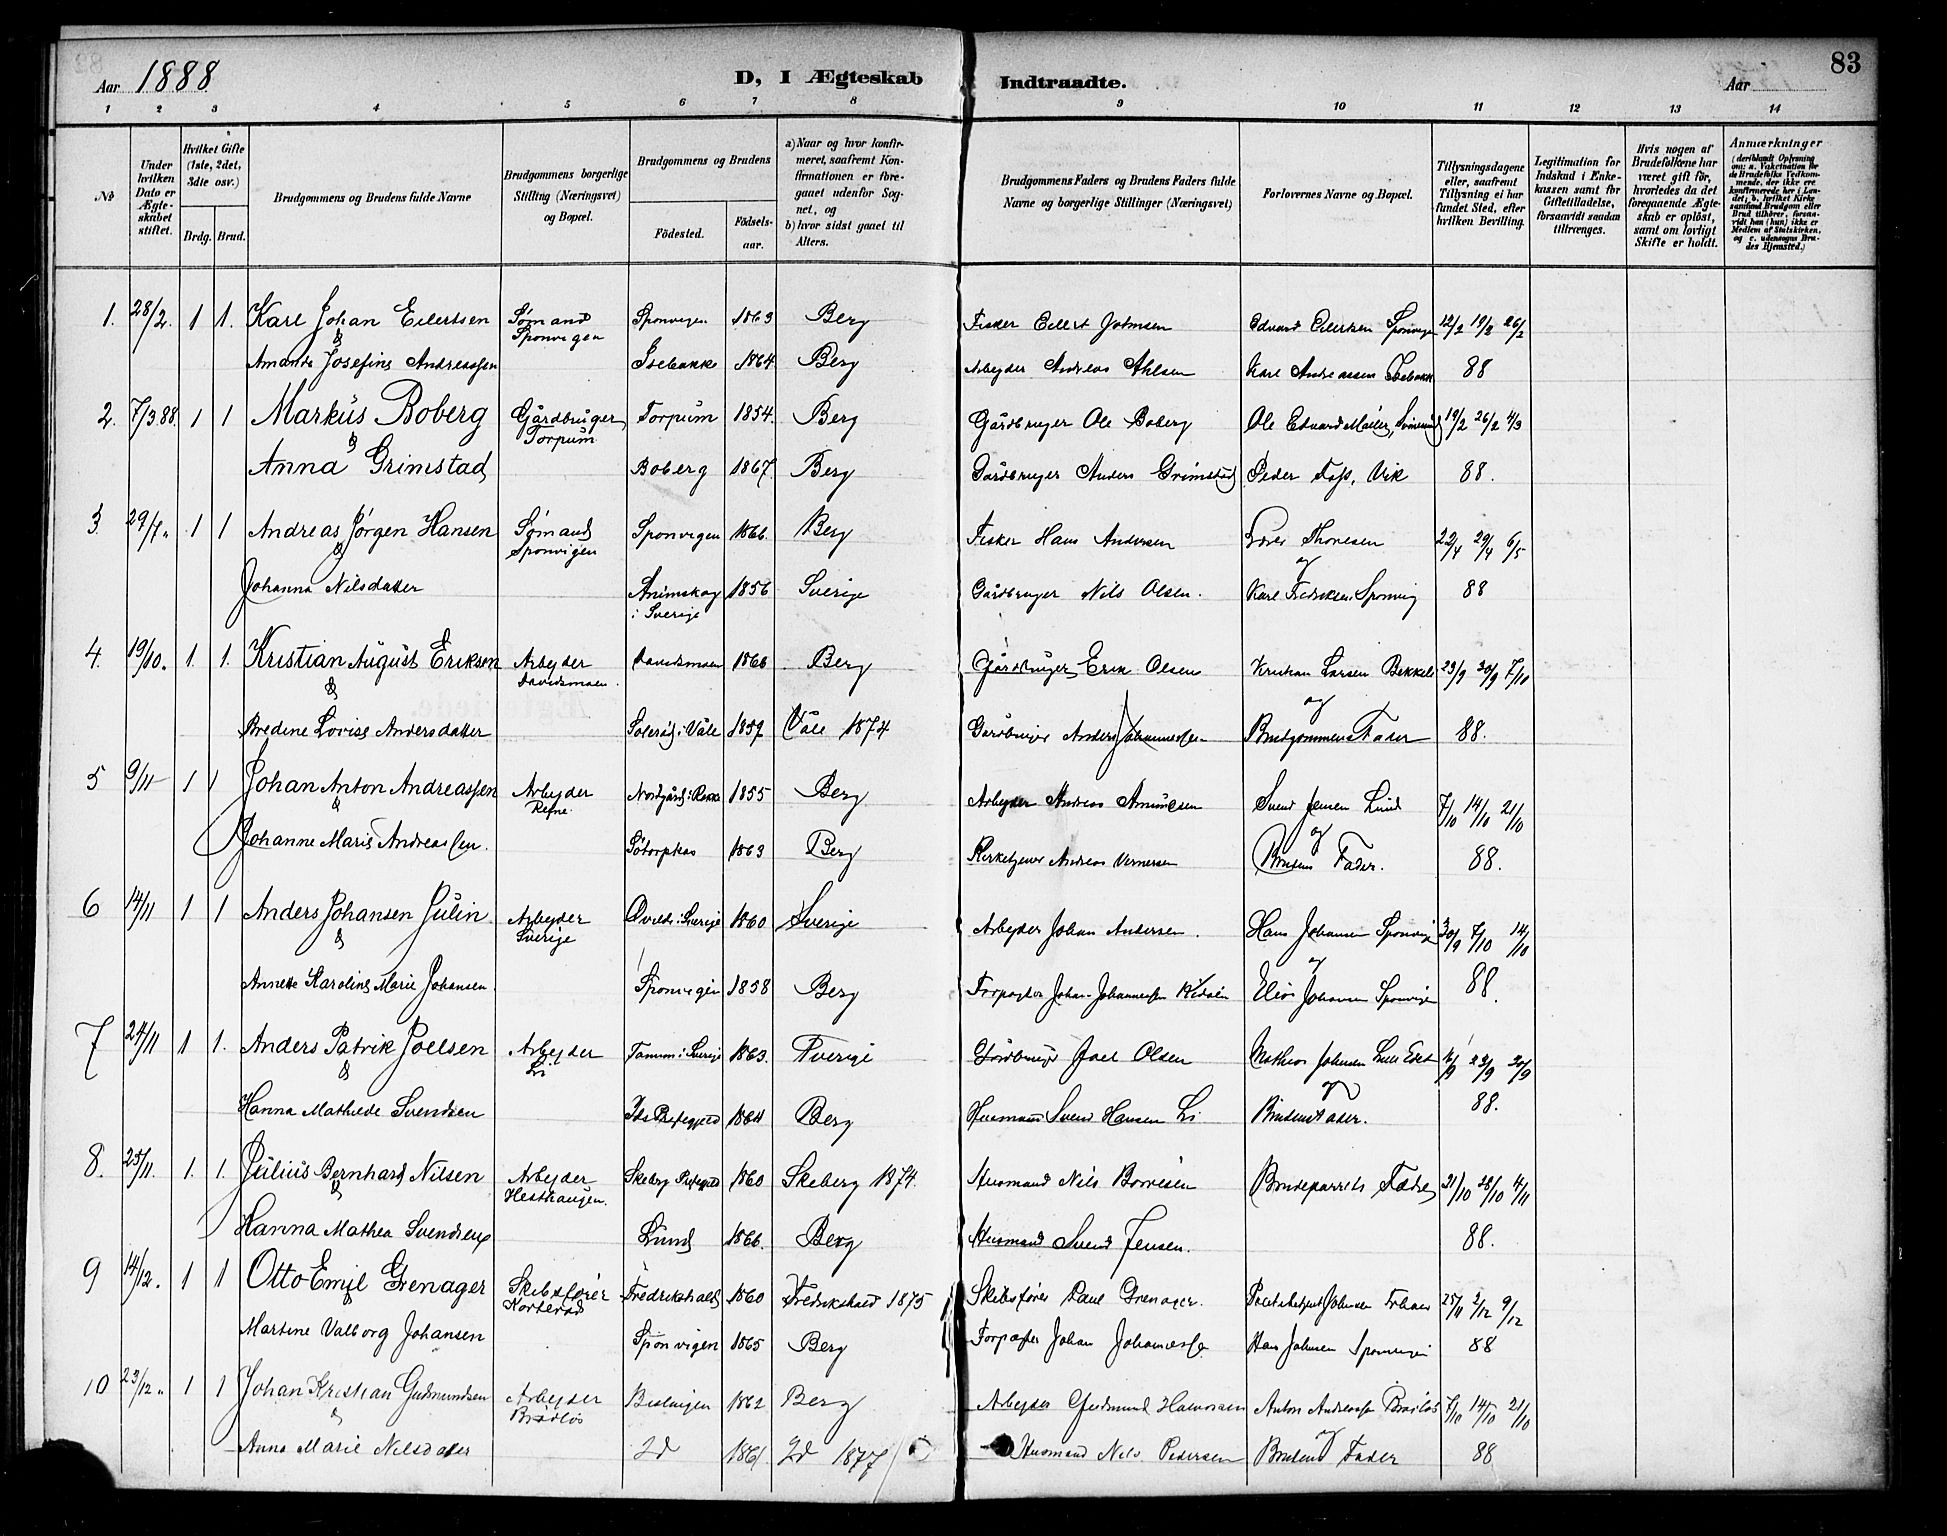 Aar 1888
D, I Ægteskab Indtraadte.
Aar
83
1 2 3 4 5 6 7 8 9 10 11 12 13 14
No
Under hvilken Dato er Ægteskabet stiftet.
Hvilket Gifte (1ste, 2det, 3die osv.)
Brdg. Brud.
Brudgommens og Brudens fulde Navne
Brudgommens borgerlige Stilling (Næringsvei) og Bopæl.
Brudgommens og Brudens
Födested.
Födselsaar.
a) Naar og hvor konfirmeret, saafremt Konfirmationen er foregaaet udenfor Sognet, og
b) hvor sidst gaaet til Alters.
Brudgommens Faders og Brudens Faders fulde Navne og borgerlige Stillinger (Næringsvei)
Forlovernes Navne og Bopæl.
Tillysningsdagene eller, saafremt Tillysning ei har fundet Sted, efter hvilken Bevilling.
Legitimation for Indskud i Enkekassen samt for Giftetilladelse, forsaavidt saadan tiltrænges.
Hvis nogen af Brudefolkene har været gift för, hvorledes da det foregaaende Ægteskab er oplöst, samt om lovligt Skifte er holdt.
Anmærkninger
(deriblandt Oplysning om: a. Vakcination for de Brudefolks Vedkommende, der ikke ere konfirmerede her i Landet; b. hvilket Kirkesamfund Brudgom eller Brud tilhörer, forsaavidt han (hun) ikke er Medlem af Statskirken, og c. udensogns Brudes Hjemsted.)
1. 28/2. 1 1. Karl Johan Eilertsen Sømand Sponvigen Sponvigen 1863 Berg Fisker Eilert Johnsen Edvard Eilertsen Sponvigen 12/2 19/2 26/2
& Amanda Josefine Andreassen Isebakke 1864 Berg Arbejder Andreas Ahlsen Karl Andreassen Isebakk 88
2. 7/3 88. 1 1 Markus Boberg Gårdbruger Torpum Torpum 1854. Berg Gårdbruger Ole Boberg Ole Edvard Møller, 19/2 26/2 4/3
& Anna Grimstad Boberg 1867. Berg Gårdbruger Anders Grimstad Peder Foss, Vik 88.
3. 29/7 " 1 1 Andreas Jørgen Hansen Sømand Sponvigen Sponvigen 1866. Berg Fisker Hans Andersen Thoresen 22/4 29/4 6/5
& Johanna Nilsdatter Animskog i Sverige 1856 Sverige Gårdbruger Nils Olsen. og Karl Fredriksen Sponvig 88
4. 19/10. 1. 1. Kristian August Eriksen Arbejder Davidsmoen. Davidsmoen 1866 Berg Gårdbruger Erik Olsen Kristian Larsen 23/9 30/9 7/10
& Bredine Lovise Andersdatter Solerød i Våle 1857 Våle 1874 Gårdbruger Anders Johannessen og Brudgommens Fader 88.
5 9/11 1 1 Johan Anton Andreassen Arbejder Refne. Nordgård i 1855 Berg Arbejder Andreas Amundsen Svend Jensen Lund 7/10 14/10 21/10
& Johanne Marie Andreassen. 1863 Berg Kirketjener Andreas Vernersen og Brudens Fader. 88.
6 14/11 1 1 Anders Johansen Julin Arbejder Sverige i Sverige 1860 Sverige Arbejder Johan Andersen. Hans Johansen Sponvigen 30/9 7/10 14/10
& Annette Karoline Marie Johansen. Sponvigen 1858 Berg Forpagter Johan Johannessen og Elias Johansen Sponvigen 88.
7 24/11 1 1. Anders Patrik Joelsen Arbejder Li Tanum i Sverige 1863. Sverige Gårdbruger Joel Olsen Mathias Johnsen 16/9 23/9 30/9
& Hanna Mathilde Svendsen Ide Prestegjeld 1864 Berg Husmand Svend Hansen Li og Brudens Fader. 88.
8. 25/11. 1. 1. Julius Bernhard Nilsen Arbejder Hesthaugen. Skeberg Prestegjeld 1860 Skeberg 1874. Husmand Nils Brudeparrets Fædre 21/10 28/10 4/11
& Hanna Mathea Svendsen Lund 1866. Berg Husmand Svend Jensen. 88.
9 14/12. 1 1 Otto Emil Grenager Skibsfører Korterød Fredrikshald 1860 Fredrikshald 1875 Skibsfører Paul Grenager. Johnsen 25/11 2/12 9/12
& Martine Valborg Johansen Sponvigen 1865 Berg Forpagter Johan Johannessen Hans Johnsen Sponvigen 88
10 23/12 " 1 1 Johan Kristian Gudmundsen Arbejder Brødløs 1862 Berg Arbejder Gudmund Halvorsen Anton Andreassen Brødløs 7/10 14/10 21/10
& Anna Marie Nilsdatter Id 1861 Id 1877 Husmand Nils Pedersen og Brudens Fader 88